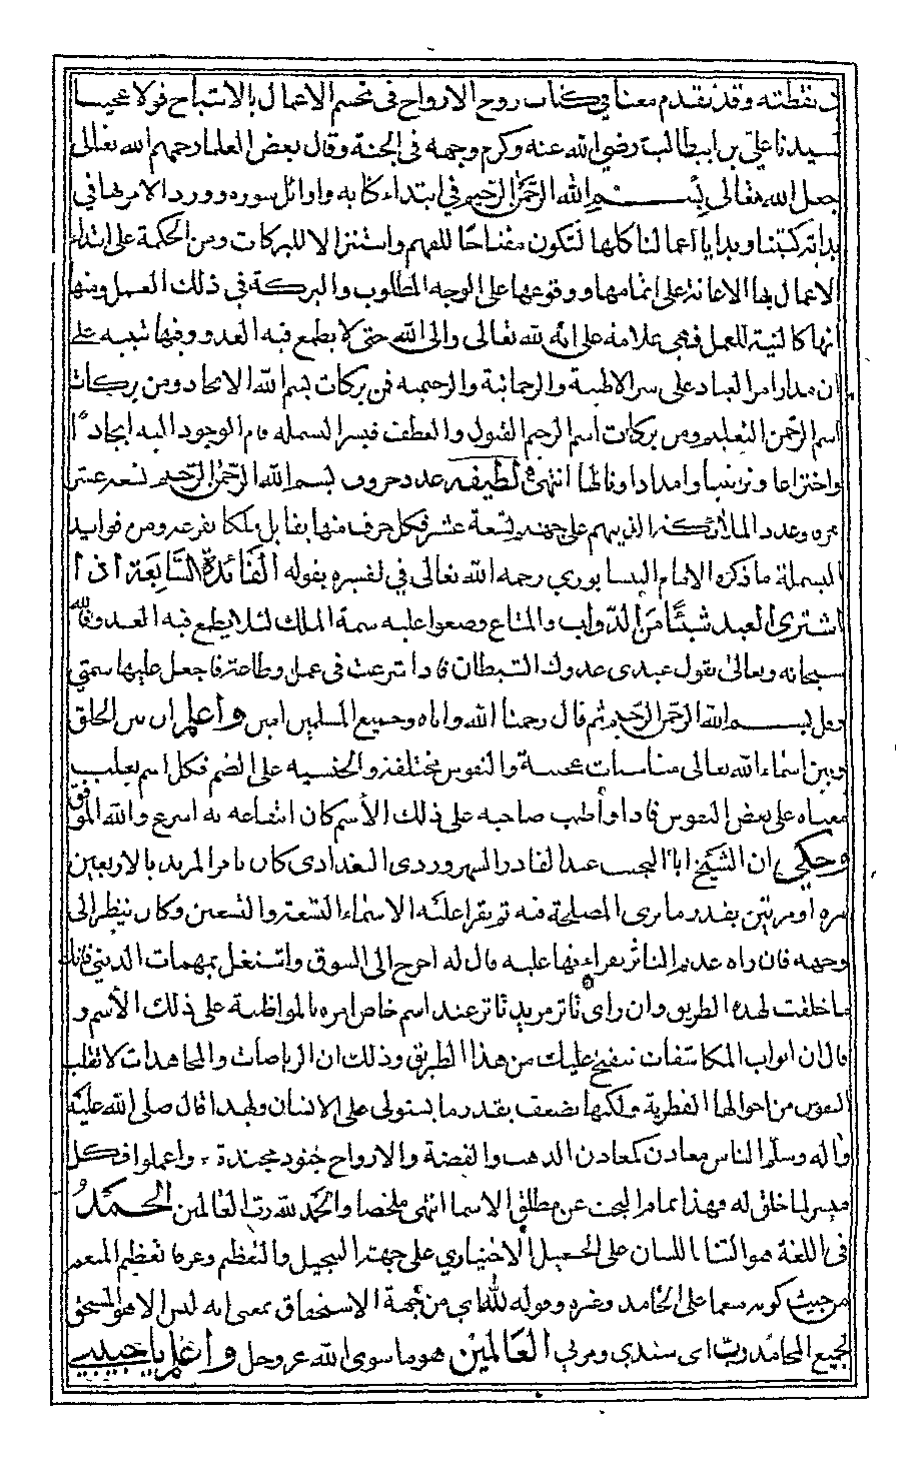 نقطته وقد تقدم معناه في كتاب روح الارواح في تجسم الاعمال بالاشباح فولا
سيدنا علي بن ابيطالب رضي الله عنه وكرم وجهه في الجنة وقال بعض العلما رحمهم الله تعالى
جعل الله تعالى بسم الله الرحمن الرحيم في ابتداء كتابه واوائل سوره وورد الامر بها في
بداية كتبنا وبدايا اعمالنا كلها لتكون مفتاحًا للفهم واستنزالا للبركات ومن الحكمة على ابتداء
الاعمال بها الاعانة على اتمامها ووقوعها على الوجه المطلوب والبركة في ذلك العمل ومنها
انها كالنية للعمل فهي علامة على انه لله تعالى والى الله حتى لا يطمع فيه العدو وفيها تنبيه على
ان مدار امر العباد على سر الالهية والرحمانية والرحيمية فمن بركات بسم الله الاتحاد ومن بركات
اسم الرحمن التعليم ومن بركات اسم الرحيم القبول والعطف فبسر البسملة قام الوجود اليه ايجادًا
واختراعا وترتيبا وامدادا وفالها انتهى لطيفه عدد حروف بسم الله الرحمن الرحيم تسعة عشر
مره وعدد الملائكة الذين هم على جهنم تسعة عشر فكل حرف منها يقابل ملكا ومن فوايد
البسملة ما ذكره الامام النيسابوري رحمه الله تعالى في تفسيره بقوله الفائدة السابعة اذا
اشترى العبد شيئًا من الدواب والمتاع وضعوا عليه سمة الملك لئلا يطمع فيه العدو فالله
سبحانه وتعالى يقول عبدي عدوك الشيطان فاذا شرعت في عمل وطاعة فاجعل عليها سمتي
وقل بسم الله الرحمن الرحيم ثم قال رحمنا الله واياه وجميع المسلمين امين واعلم ان بين الخلق
وبين اسماء الله تعالى مناسبات عجيبة والنفوس مختلفة والجنسيه على الضم فكل اسم يغلب
معناه على بعض النفوس فاذا واظب صاحبه على ذلك الاسم كان انتفاعه به اسرع والله الموفق
وحكي ان الشيخ ابا النجيب عبد القادر السهروردي البغدادي كان يامر المريد بالاربعين
مره او مرتين بقدر ما يرى المصلحة فيه ثم يقرا عليه الاسماء التسعة والتسعين وكان ينظر الى
وجهه فان راه عديم التاثر بقراءتها عليه قال له اخرج الى السوق واشتغل بمهمات الدنيا فانك
ما خلقت لهذه الطريق وان رأى تاثر مريد تاثر عند اسم خاص امره بالمواظبة على ذلك الاسم و
قال ان ابواب المكاشفات تنفتح عليك من هذا الطريق وذلك ان الرياضات والمجاهدات لا تقلب
النفوس من احوالها الفطرية ولكنها تضعف بقدر ما تستولى على الانسان ولهذا قال صلى الله عليه
واله وسلم الناس معادن كمعادن الذهب والفضة والارواح جنود مجندة واعملوا فكل
ميسر لما خلق له فهذا تمام البحث عن مطلق الاسما انتهى ملخصا والحمد لله رب العالمين الحمد
في اللغة هو الثنا باللسان على الجميل الاختياري على جهة التبجيل والتعظيم وعرفا تعظيم المنعم
من حيث كونه منعما على الحامد وغيره وقوله لله اي من جهة الاستحقاق بمعنى انه ليس الا هو المستحق
لجميع المحامد رب اي سندي ومربي العالمين هو ما سوى الله عز وجل واعلم يا حبيبي